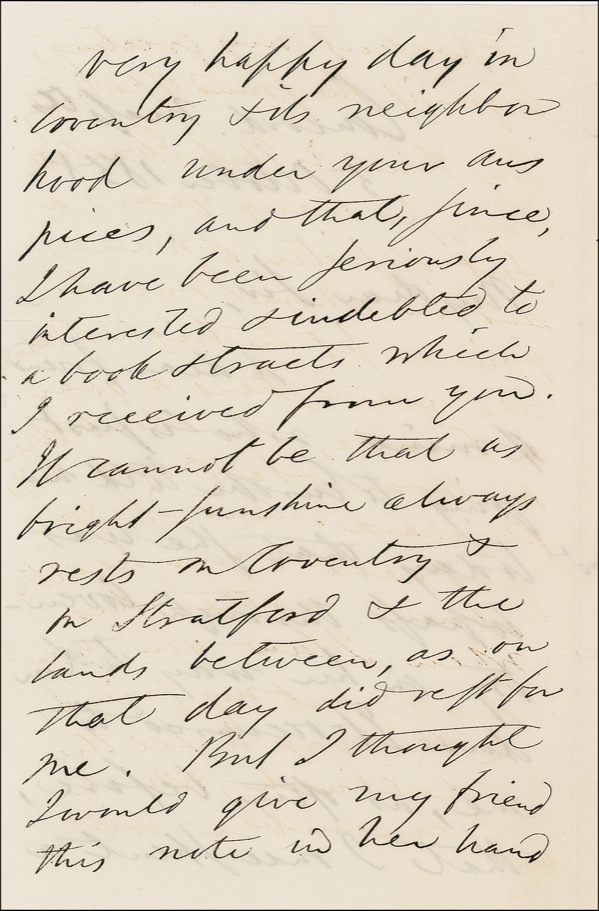 very happy day in
Coventry & its neighbor
hood under your aus
pices, and that, since,
I have been seriously
interested & indebted to
a book & tracts which
I received from you.
It cannot be that as
bright sunshine always
rests on Coventry &
on Stratford & the
lands between, as on
that day did rest for
me. But I thought
I would give my friend
this note in her hand